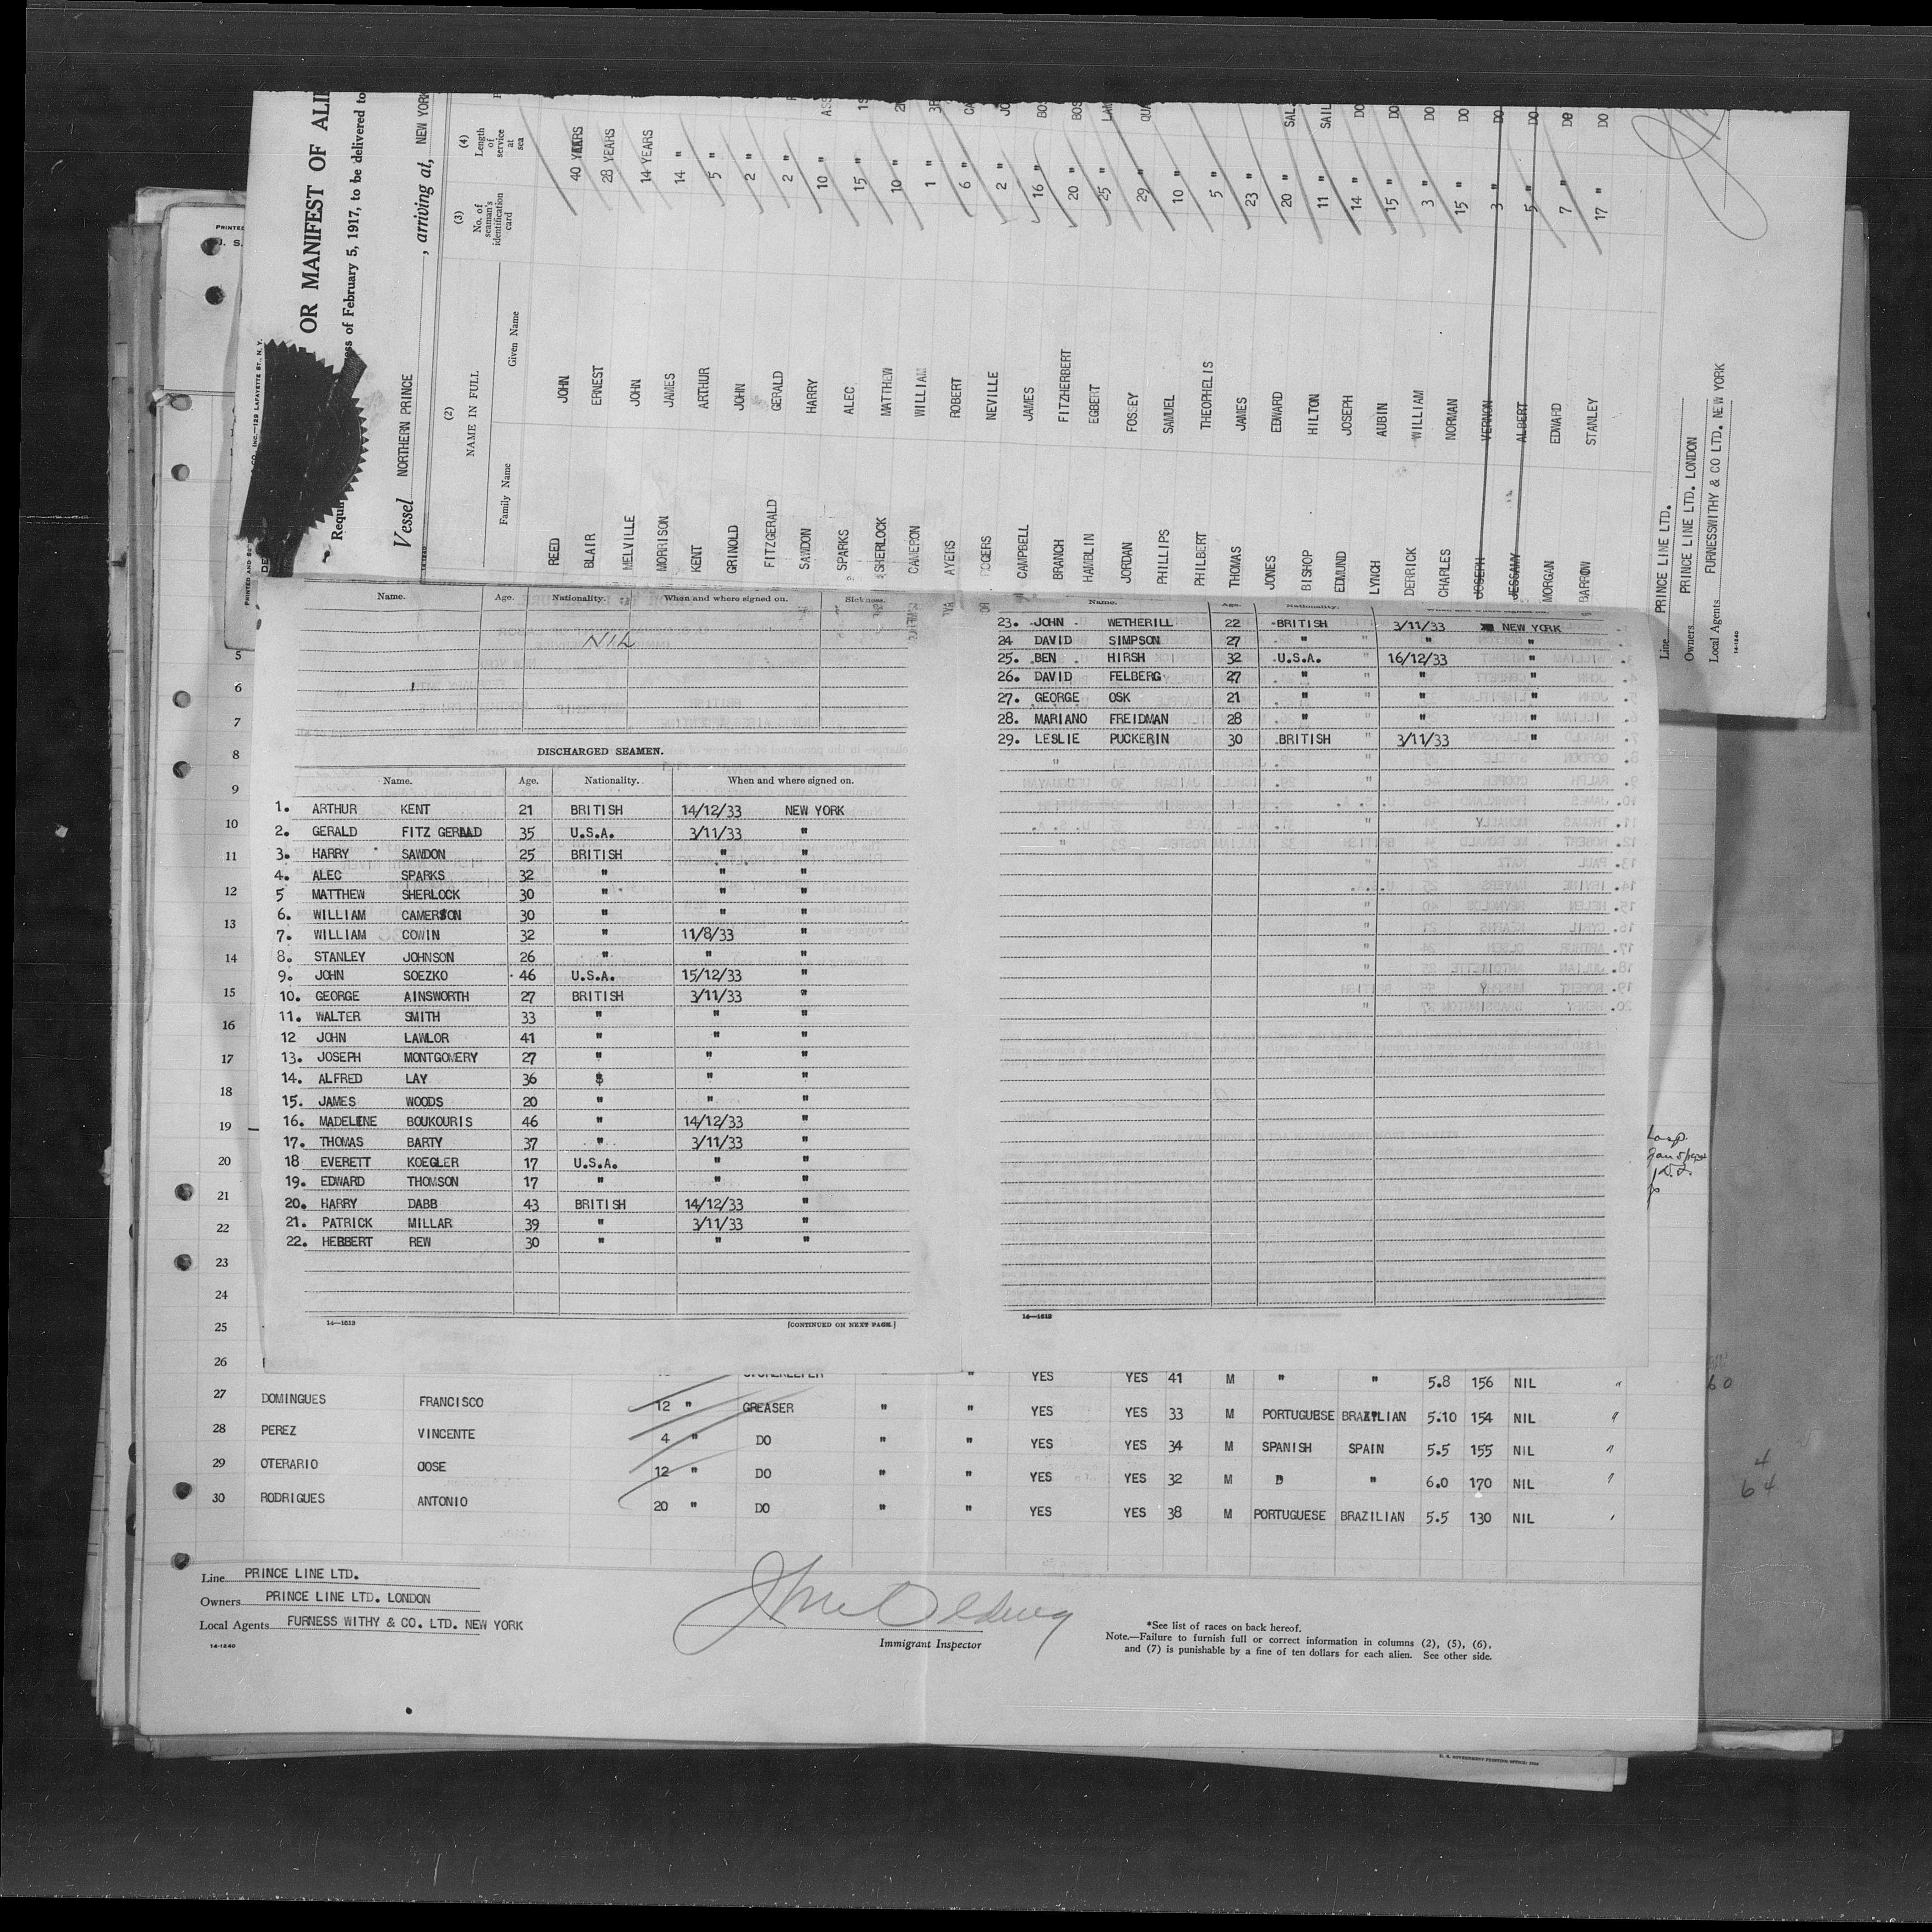 OR MANIFEST OF
of February 5, 1917, to be delivered to
Vessel NORTHERN PRINCE , arriving at, NEW YORK
(2) (3) (4)
NAME IN FULL No. of seaman's identification card Length of service at sea
Family Name Given Name
REED JOHN 40 YEARS
BLAIR ERNEST 28 YEARS
MELVILLE JOHN 14 YEARS
MORRISON JAMES 14 "
KENT ARTHUR 5 "
GRINOLD JOHN 2 "
FITZGERALD GERALD 2 "
SAWDON HARRY 10 "
SPARKS ALEC 15 "
SHERLOCK MATTHEW 10 "
CAMERON WILLIAM 1 "
AYERS ROBERT 6 "
ROGERS NEVILLE 2 "
CAMPBELL JAMES 16 "
BRANCH FITZHERBERT 20 "
HAMBLIN EGBERT 25 "
JORDAN FOSSEY 29 "
PHILLIPS SAMUEL 10 "
PHILBERT THEOPHELIS 5 "
THOMAS JAMES 23 "
JONES EDWARD 20 "
BISHOP HILTON 11 " SAIL
EDMUND JOSEPH 14 " DO
LYNCH AUBIN 15 " DO
DERRICK WILLIAM 3 " DO
CHARLES NORMAN 15 " DO
JOSEPH VERNON 3 " DO
JESSAMY ALBERT 5 " DO
MORGAN EDWARD 7 " DO
BARROW STANLEY 17 " DO
Line PRINCE LINE LTD.
Owners PRINCE LINE LTD. LONDON
Local Agents FURNESSWITHY & CO LTD. NEW YORK
14-1240
Name. Age. Nationality. When and where signed on. Sickness.
NIL
DISCHARGED SEAMEN.
Name. Age. Nationality. When and where signed on.
1. ARTHUR KENT 21 BRITISH 14/12/33 NEW YORK
2. GERALD FITZ GERALD 35 U.S.A. 3/11/33 "
3. HARRY SAWDON 25 BRITISH " "
4. ALEC SPARKS 32 " " "
5 MATTHEW SHERLOCK 30 " " "
6. WILLIAM CAMERSON 30 " " "
7. WILLIAM COWIN 32 " 11/8/33 "
8. STANLEY JOHNSON 26 " " "
9. JOHN SOEZKO 46 U.S.A. 15/12/33 "
10. GEORGE AINSWORTH 27 BRITISH 3/11/33 "
11. WALTER SMITH 33 " " "
12 JOHN LAWLOR 41 " " "
13. JOSEPH MONTGOMERY 27 " " "
14. ALFRED LAY 36 " " "
15. JAMES WOODS 20 " " "
16. MADELENE BOUKOURIS 46 " 14/12/33 "
17. THOMAS BARTY 37 " 3/11/33 "
18 EVERETT KOEGLER 17 U.S.A. " "
19. EDWARD THOMSON 17 " " "
20. HARRY DABB 43 BRITISH 14/12/33 "
21. PATRICK MILLAR 39 " 3/11/33 "
22. HEBBERT REW 30 " " "
14—1613 [CONTINUED ON NEXT PAGE.]
Name. Age. Nationality. When and where signed on.
23. JOHN WETHERILL 22 BRITISH 3/11/33 NEW YORK
24 DAVID SIMPSON 27 " " "
25. BEN HIRSH 32 U.S.A. 16/12/33 "
26. DAVID FELBERG 27 " " "
27. GEORGE OSK 21 " " "
28. MARIANO FREIDMAN 28 " " "
29. LESLIE PUCKERIN 30 BRITISH 3/11/33 "
14—1613
5
6
7
8
9
10
11
12
13
14
15
16
17
18
19
20
21
22
23
24
25
26 STOREKEEPER " YES YES 41 M " " 5.8 156 NIL "
27 DOMINGUES FRANCISCO 12 " GREASER " " YES YES 33 M PORTUGUESE BRAZILIAN 5.10 154 NIL "
28 PEREZ VINCENTE 4 " DO " " YES YES 34 M SPANISH SPAIN 5.5 155 NIL "
29 OTERARIO JOSE 12 " DO " " YES YES 32 M " 6.0 170 NIL "
30 RODRIGUES ANTONIO 20 " DO " " YES YES 38 M PORTUGUESE BRAZILIAN 5.5 130 NIL "
4
64
Line PRINCE LINE LTD.
Owners PRINCE LINE LTD. LONDON
Local Agents FURNESS WITHY & CO. LTD. NEW YORK
14-1240
Immigrant Inspector
*See list of races on back hereof.
Note.—Failure to furnish full or correct information in columns (2), (5), (6),
and (7) is punishable by a fine of ten dollars for each alien. See other side.
U. S. GOVERNMENT PRINTING OFFICE